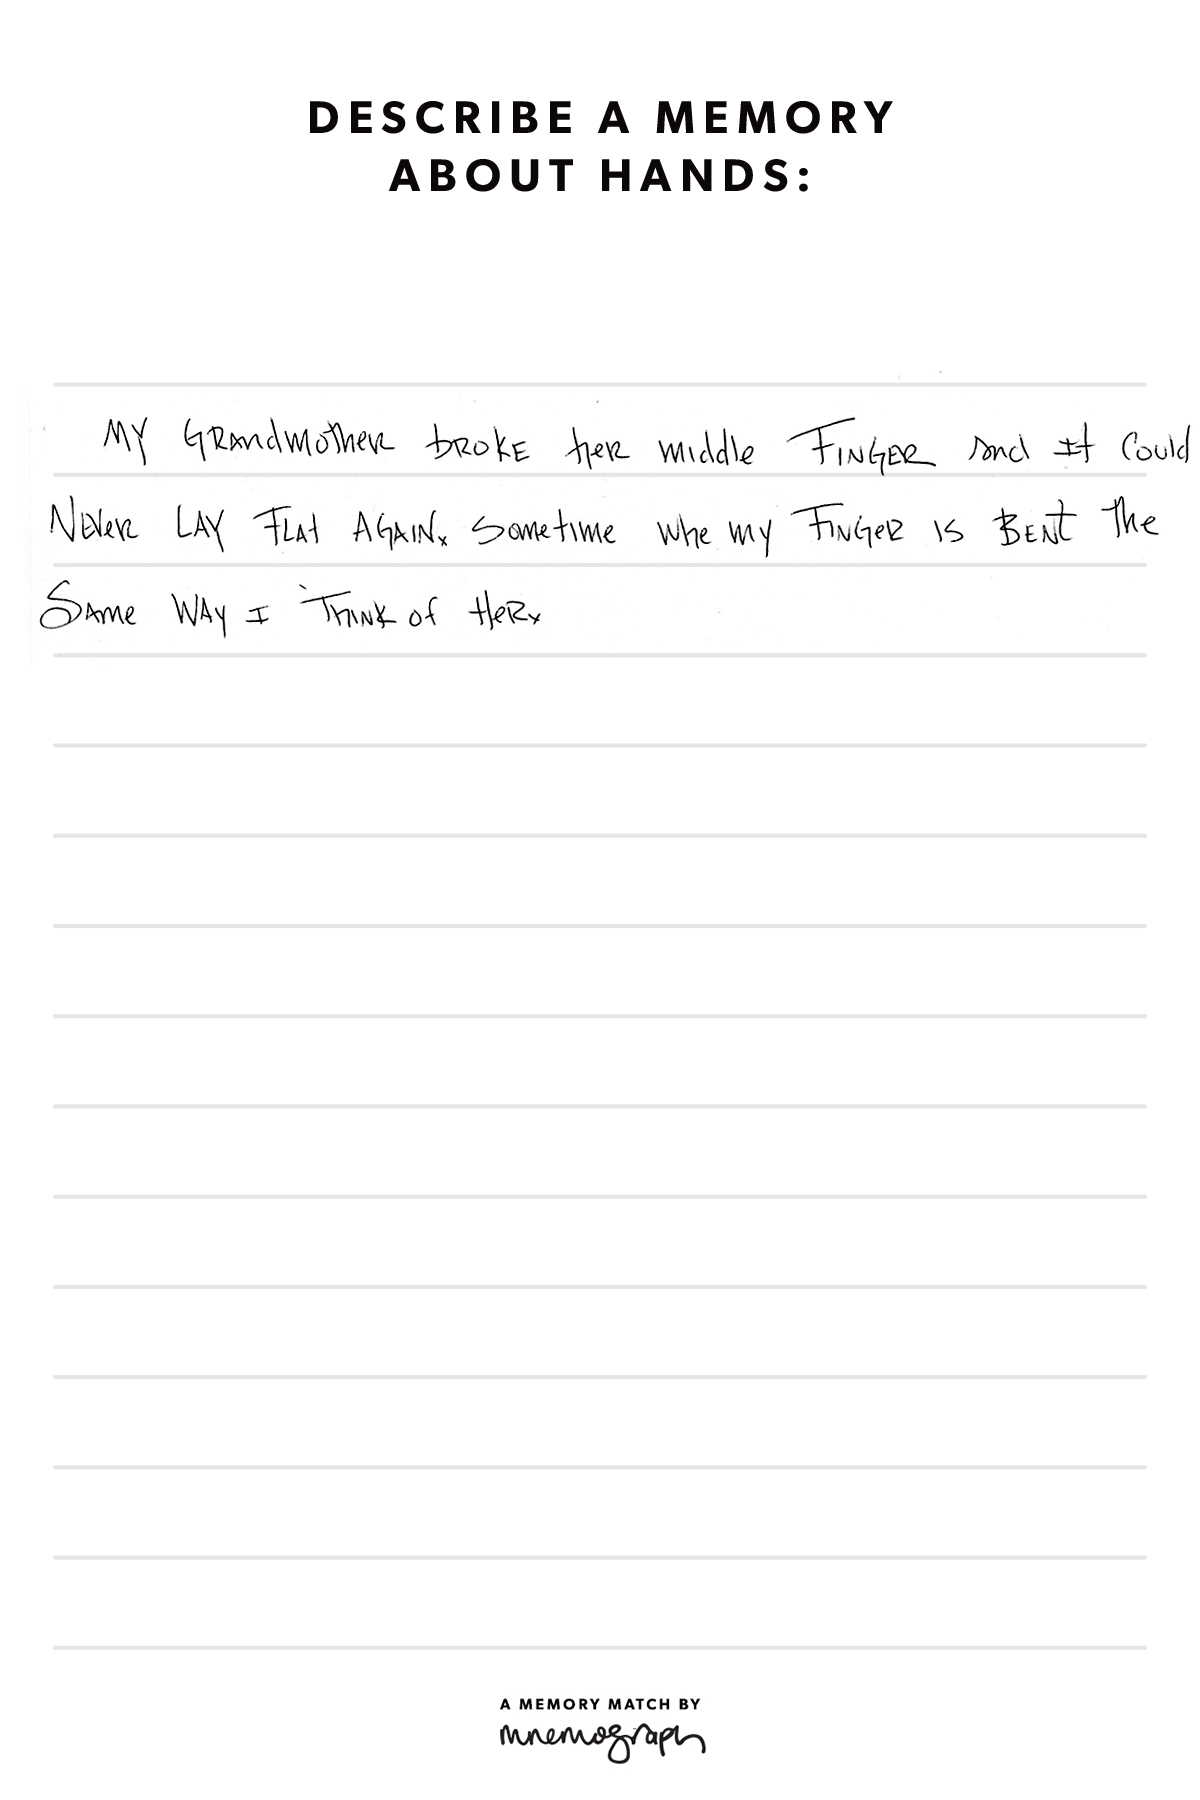 DESCRIBE A MEMORY
ABOUT HANDS:
MY GRandmother bROKE Her middle FINGER and It Could
NeVer LAY FLat AGAIN. Sometime whe my FINGeR IS BENt The
SAme WAY I THINK of HeR.
A MEMORY MATCH BY
mnemograph